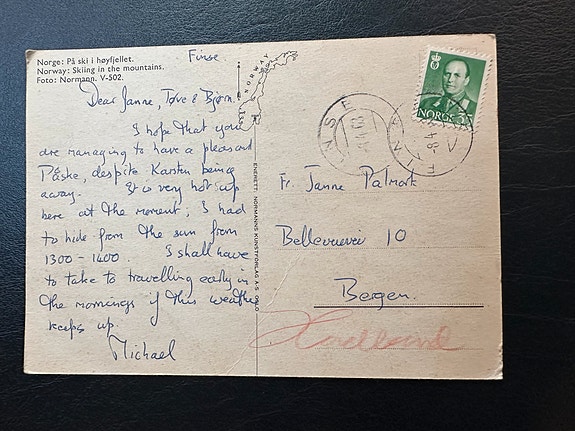 Norge: På ski i høyfjellet.
Norway: Skiing in the mountains.
Foto: Normann. V-502.
Finse.
NORWAY
Dear Janne, Tove & Bjørn.
I hope that you
are managing to have a pleasant
Påske, despite Karsten being
away. It is very hot up
here at the moment; I had
to hide from the sun from
1300 - 1400. I shall have
to take to travelling early in
the mornings if this weather
keeps up.
Michael
ENERETT: NORMANNS KUNSTFORLAG A.S. OSLO
NORGE 35
Fr. Janne Palmork
Bellevuevei 10
Bergen.